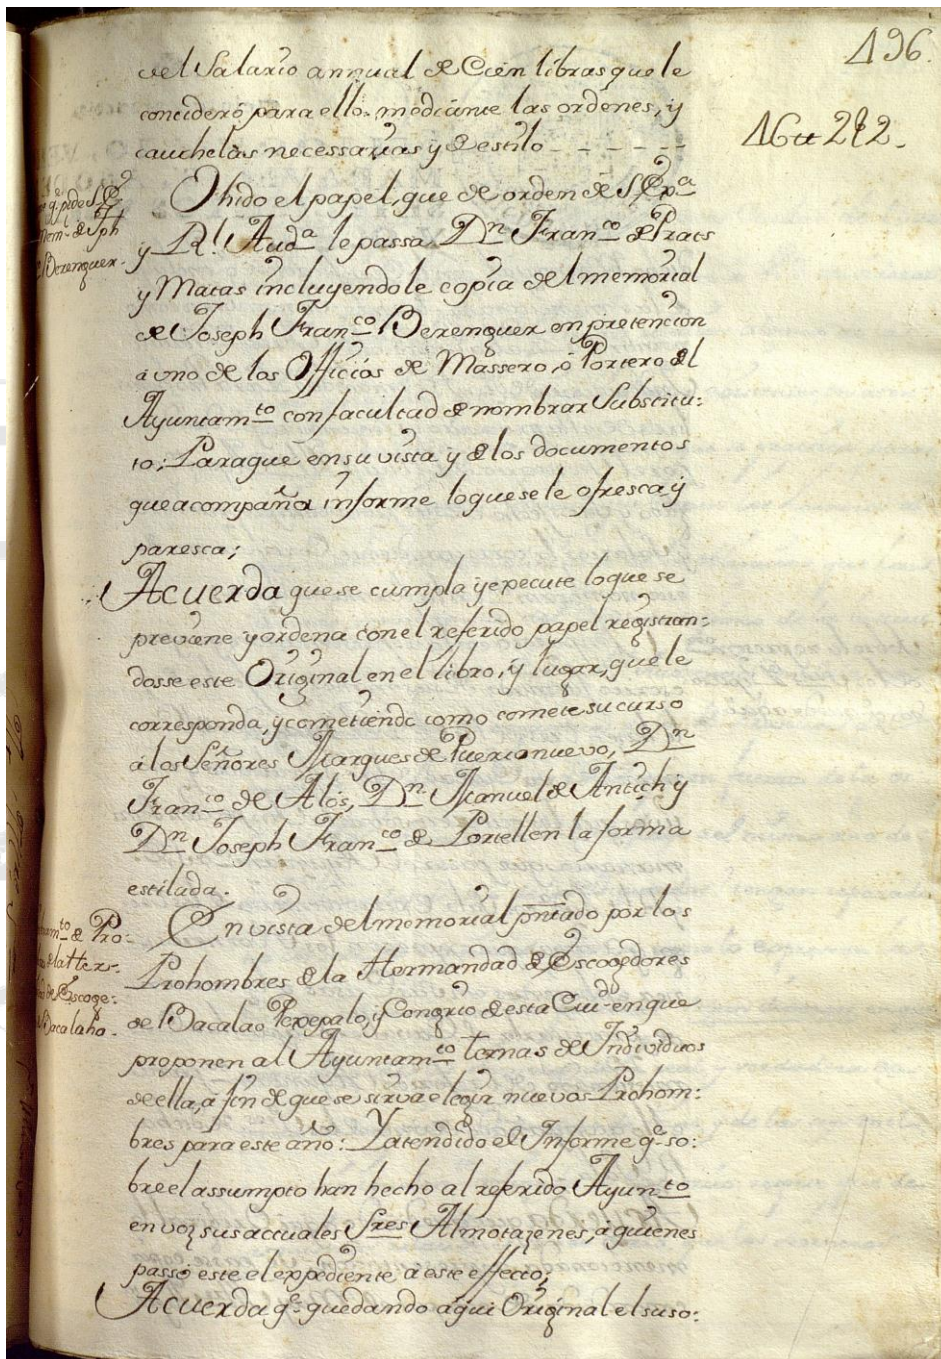 196.
16tt 2ę2.
del Salario annual de Cien libras que le
concideró para ello, mediante las ordenes, y
cauthelas necessarias y de estilo - - - - - -
Ohido el papel, que de orden de S. Exª
y Rl. Audª le passa Dn. Franco. de Prats
y Matas incluyendole copia del memorial
de Joseph Franco. Berenguer en pretencion
à uno de los Officios de Massero, ò Portero del
Ayuntamto. con facultad de nombrar Substitu:
to; Paraque en su vista y de los documentos
que acompaña informe loque se le ofresca y
paresca;
Acuerda que se cumpla y execute loque se
previene y ordena con el referido papel registran:
dosse este Original en el libro, y lugar, que le
corresponda, y cometiendo como comete su curso
à los Señores Marques de Puertonuevo, Dn.
Franco. de Alós, Dn. Manuel de Antich y
Dn. Joseph Franco. de Portell en la forma
estilada.
q. pide S. E.
mem.l de Jph
Berenguer.
En vista del memorial pntado por los
Prohombres de la Hermandad de Escogedores
de Bacalao Pexepalo, y Congrio de esta Ciudd. en que
proponen al Ayuntamto. ternas de Individuos
de ella, à fin de que se sirva elegir nuevos Prohom:
bres para este año: Y atendido el Informe qe. so:
bre el assumpto han hecho al referido Ayunto.
en voz sus actuales Sres. Almotazenes, à quienes
passó este el expediente à este effecto;
Acuerda qe. quedando aqui Original el suso:
to. de Pro:
de la Her:
de Escoge:
Bacalaho.